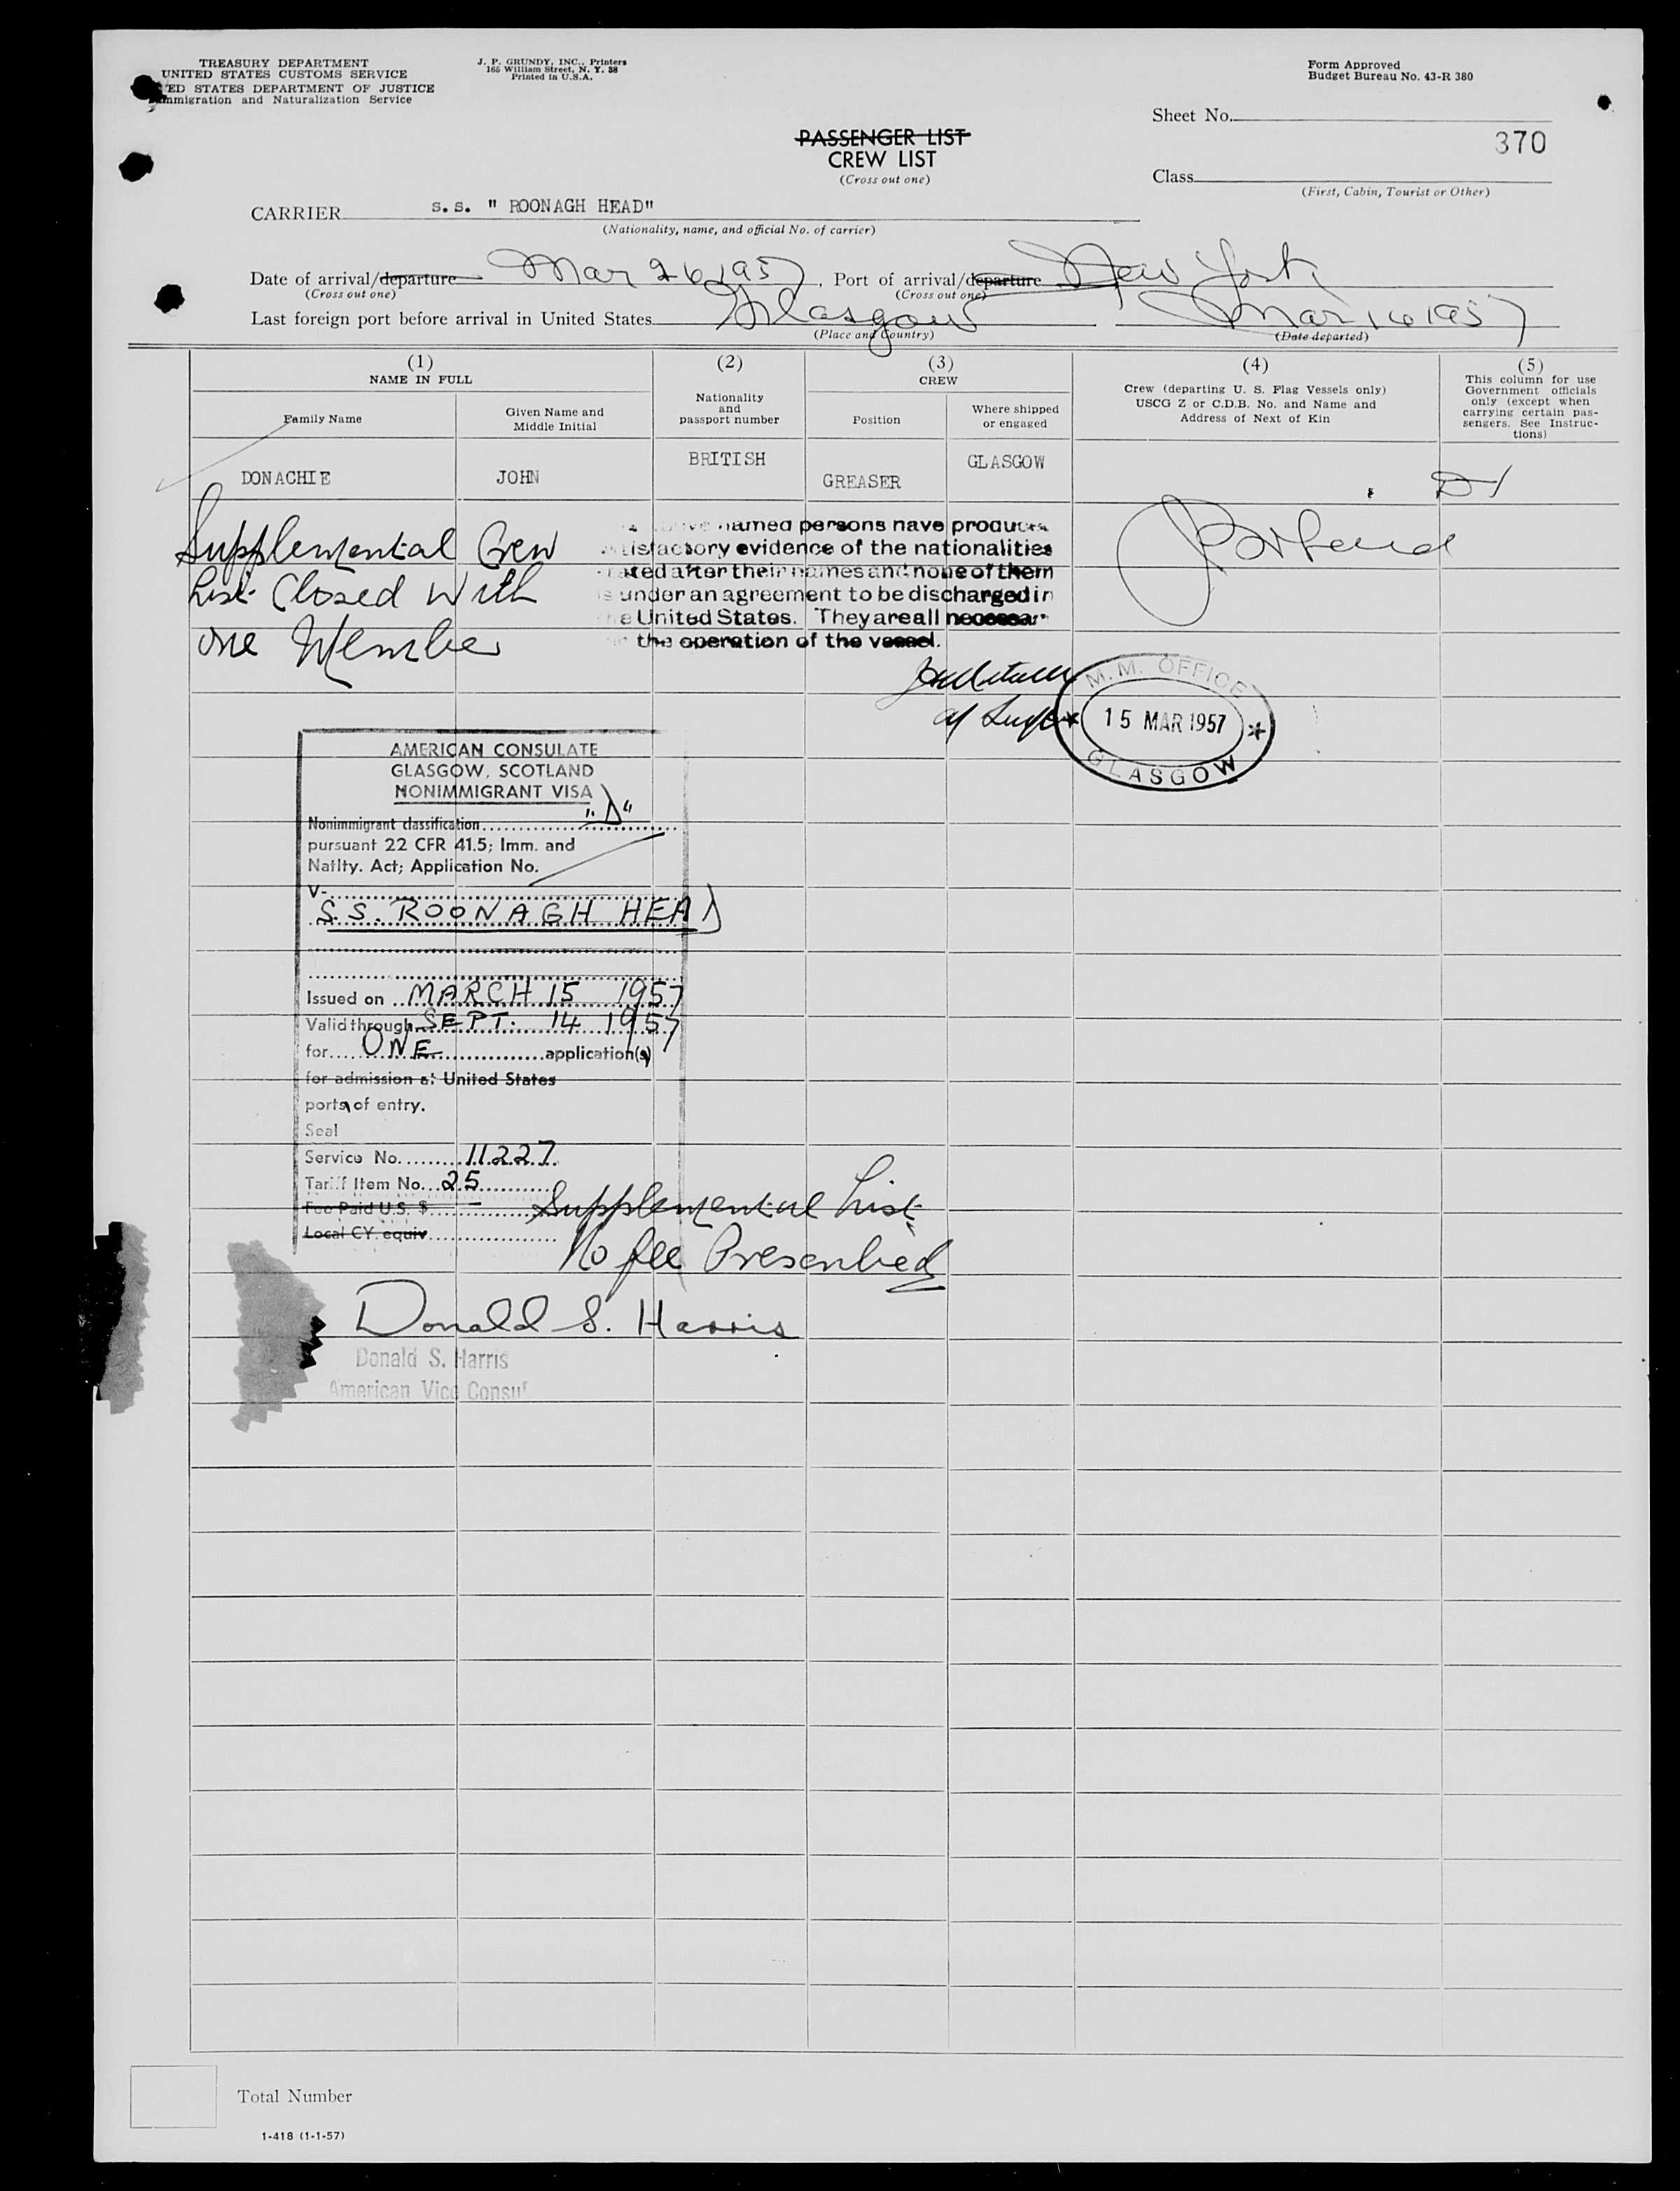 TREASURY DEPARTMENT
UNITED STATES CUSTOMS SERVICE
ED STATES DEPARTMENT OF JUSTICE
mmigration and Naturalization Service
J. P. GRUNDY, INC., Printers
166 William Street, N. Y. 38
Printed in U.S.A.
Form Approved
Budget Bureau No. 43-R 380
Sheet No.
370
PASSENGER LIST
CREW LIST
(Cross out one)
Class
(First, Cabin, Tourist or Other)
CARRIER s.s. " ROONAGH HEAD"
(Nationality, name, and official No. of carrier)
Date of arrival/departure Mar 26 1957, Port of arrival/departure New York
(Cross out one) (Cross out one)
Last foreign port before arrival in United States Glasgow Mar 16 1957
(Place and Country) (Date departed)
(1) (2) (3) (4) (5)
NAME IN FULL
Family Name
Given Name and
Middle Initial
Nationality
and
passport number
CREW
Position
Where shipped
or engaged
Crew (departing U. S. Flag Vessels only)
USCG Z or C.D.B. No. and Name and
Address of Next of Kin
This column for use
Government officials
only (except when
carrying certain pas-
sengers. See Instruc-
tions)
DONACHIE JOHN BRITISH GREASER GLASGOW D1
Supplemental Crew
List Closed With
one Member
named persons have produc
tisfactory evidence of the nationalities
ated after their names and none of them
is under an agreement to be discharged in
he United States. They are all necessar
the operation of the vessel.
M.M. OFFICE
15 MAR 1957
GLASGOW
AMERICAN CONSULATE
GLASGOW, SCOTLAND
NONIMMIGRANT VISA
Nonimmigrant classification "D"
pursuant 22 CFR 41.5; Imm. and
Natlty. Act; Application No.
V-
S.S. ROONAGH HEAD
Issued on MARCH 15 1957
Valid through SEPT. 14 1957
for ONE application(s)
for admission at United States
ports of entry.
Seal
Service No. 11227
Tariff Item No. 25
Fee Paid U.S. $ —
Local CY. equiv
Supplemental List
No fee Prescribed
Donald S. Harris
Donald S. Harris
American Vice Consul
Total Number
1-418 (1-1-57)